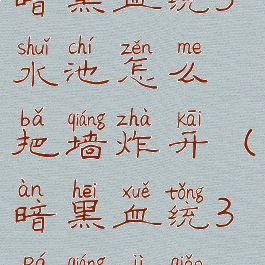 暗黑血统3
shuǐ chí zěn me
水池怎么
bǎ qiáng zhà kāi
把墙炸开（
àn hēi xuě tǒng
暗黑血统3
pá qiáng jì qiǎo